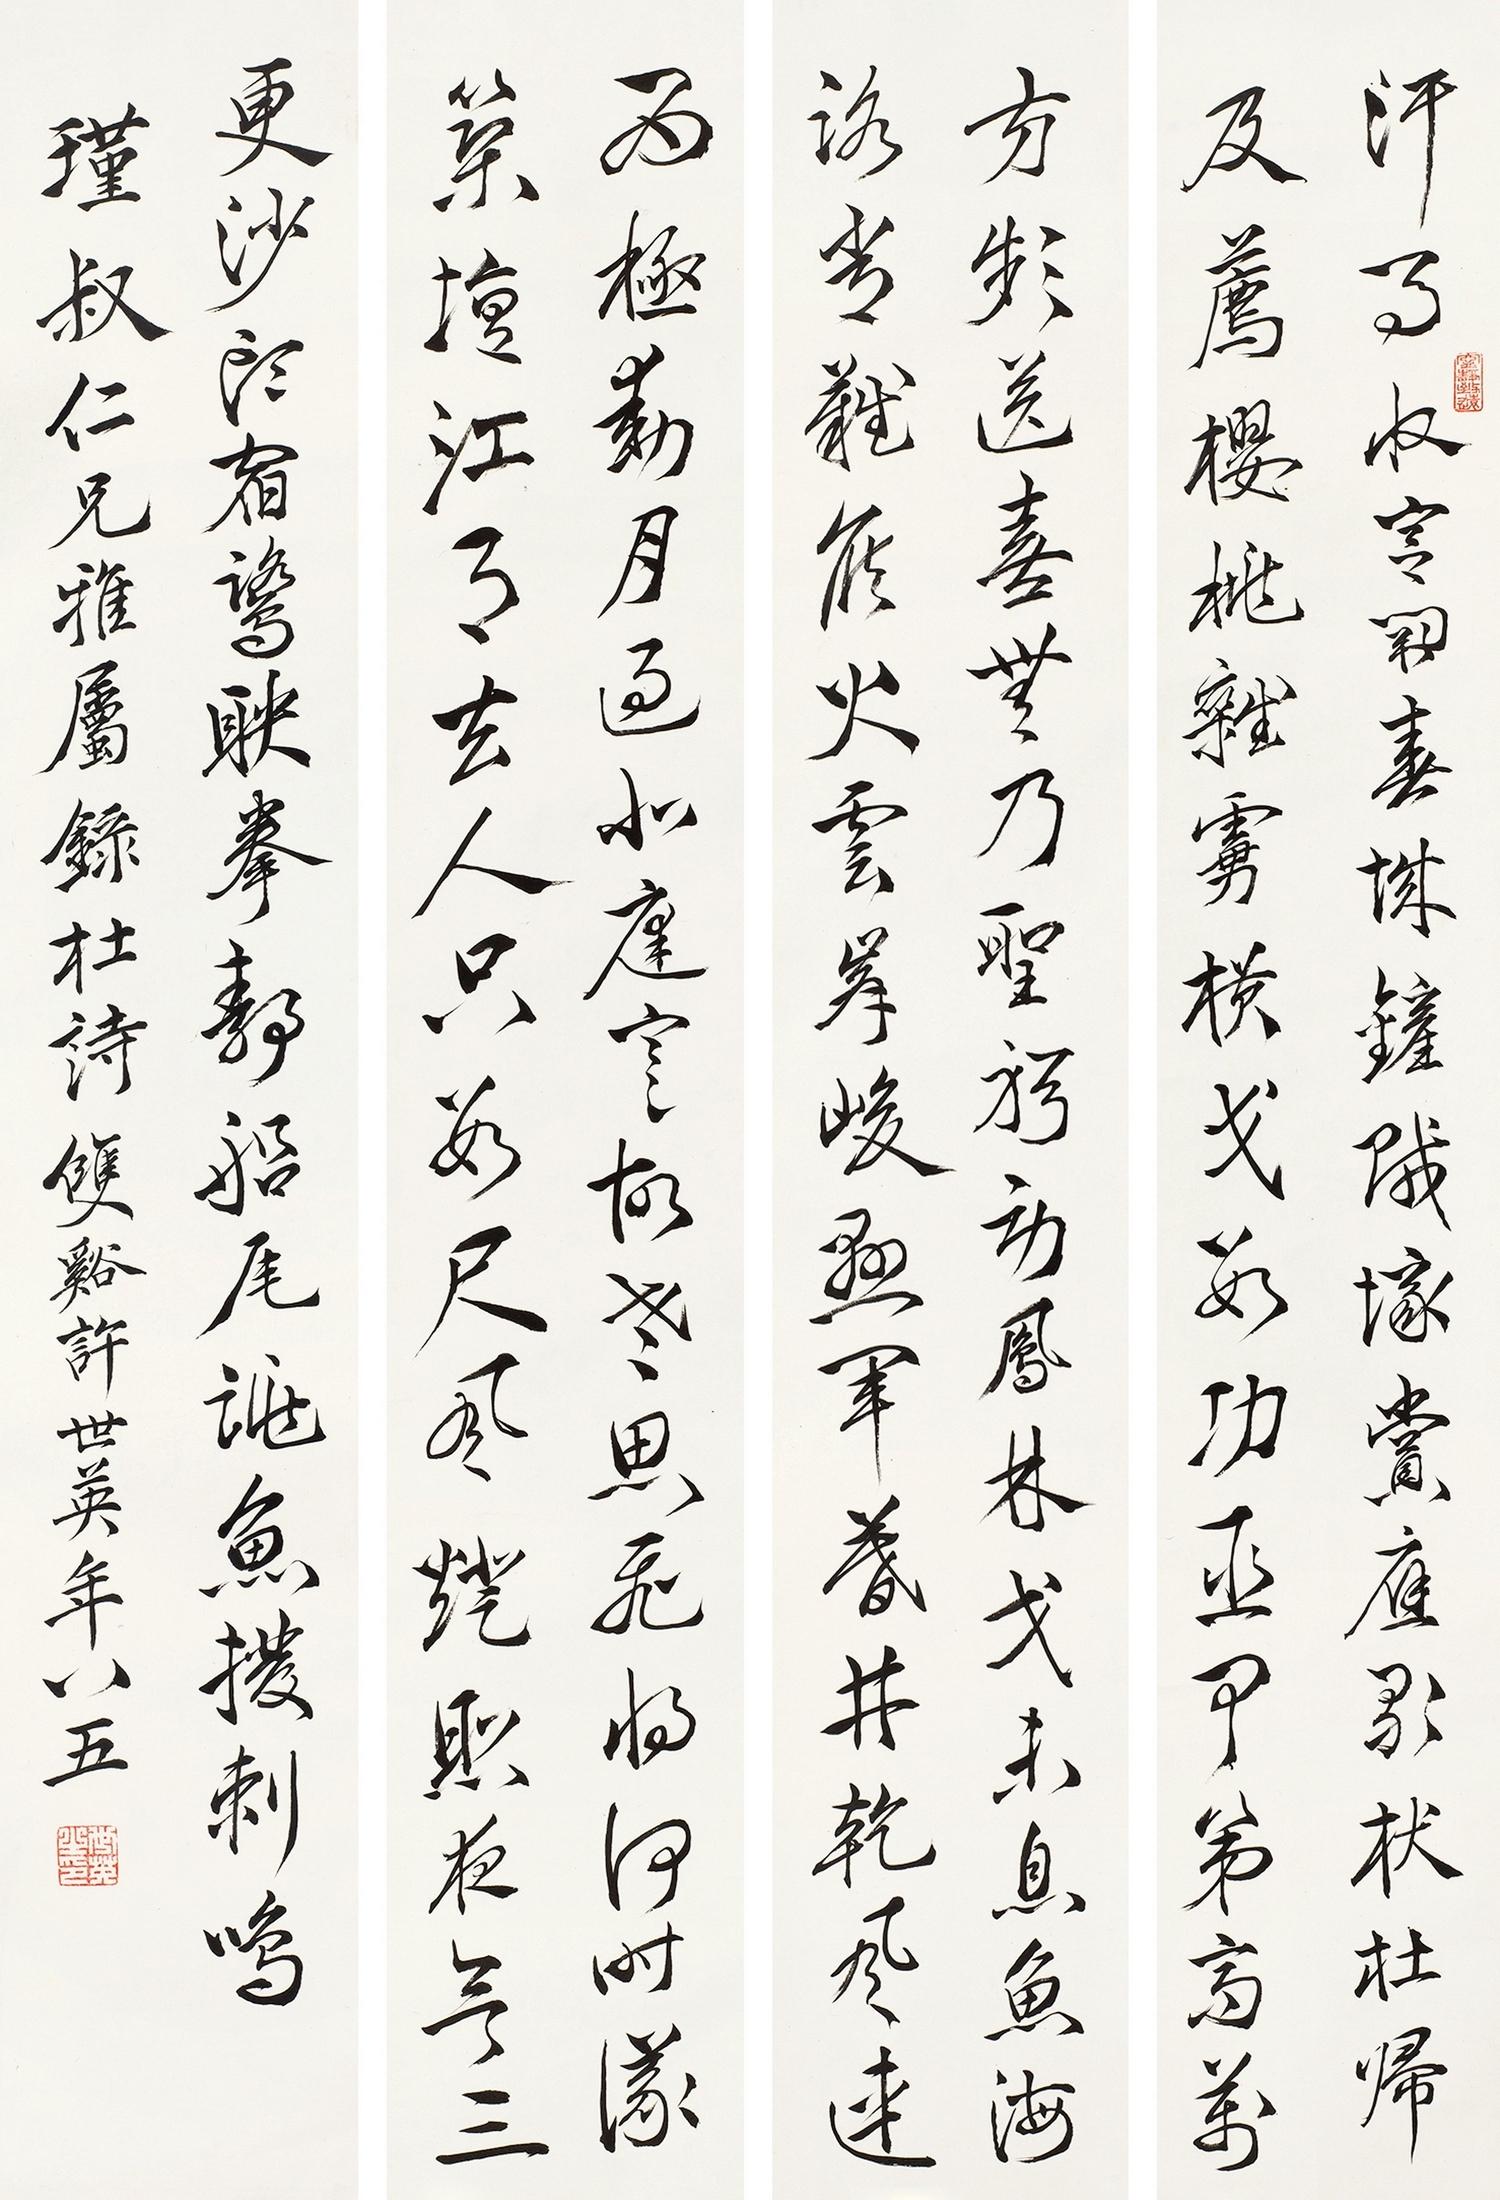 汗馬收宮闕春城鏟賊壕賞應歌杕杜歸
及薦櫻桃雜虜橫戈數功臣甲第高萬
方頻送喜無乃聖躬勞鳳林戈未息魚海
路常難候火雲峯峻懸軍幕井乾風連
西極動月過北庭寒故老思飛將何時議
築壇江月去人只數尺風燈照夜欲三
更沙頭宿鷺聯拳靜船尾跳魚撥刺鳴
瑾叔仁兄雅屬錄杜詩 雙谿許世英年八五
寧靜致遠